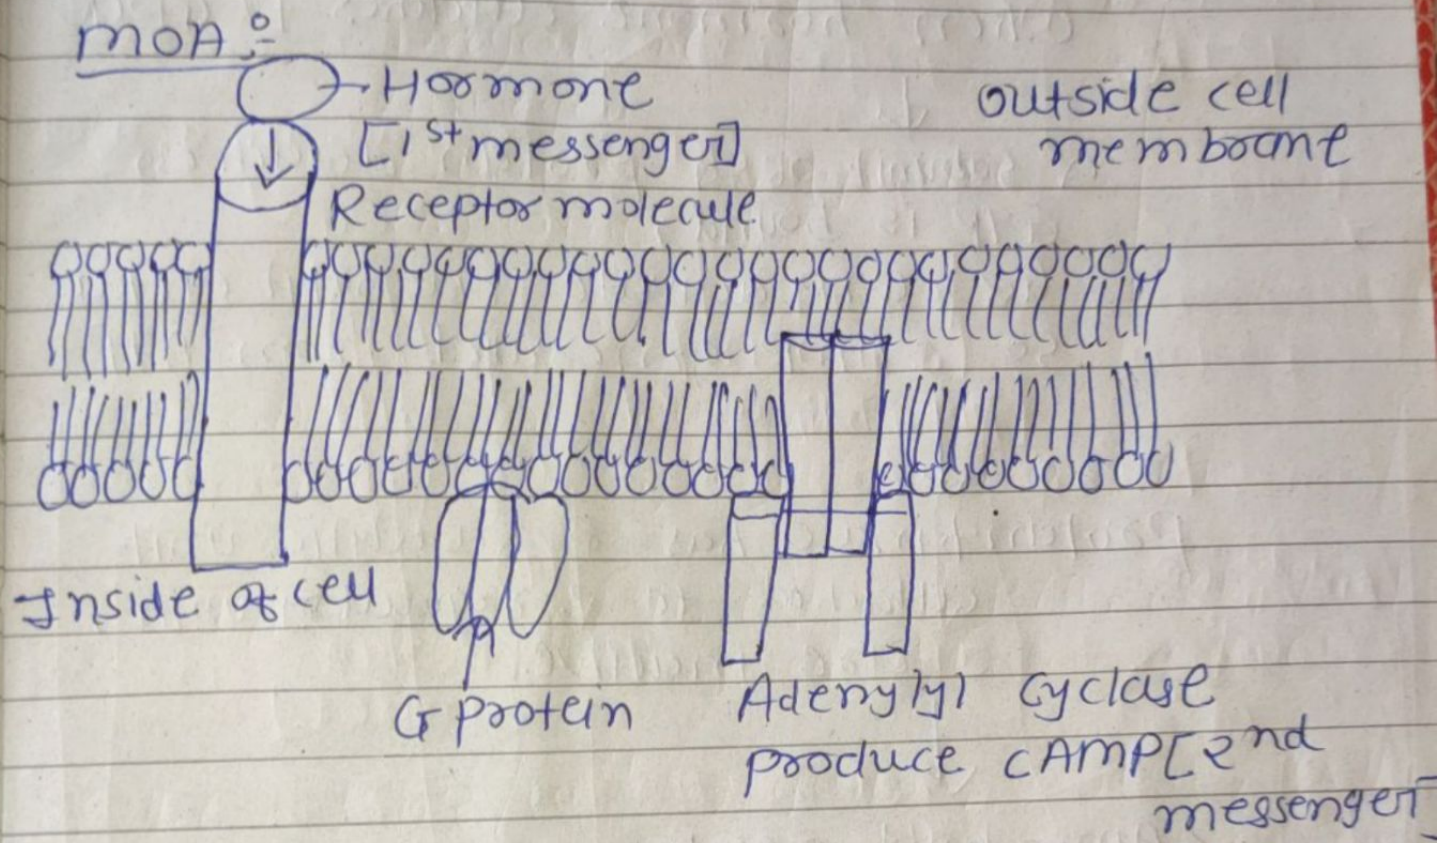 MOA :-
Hormone
[1st messenger]
Receptor molecule
outside cell
membrane
Inside of cell
G protein
Adenylyl cyclase
produce cAMP[2nd
messenger]